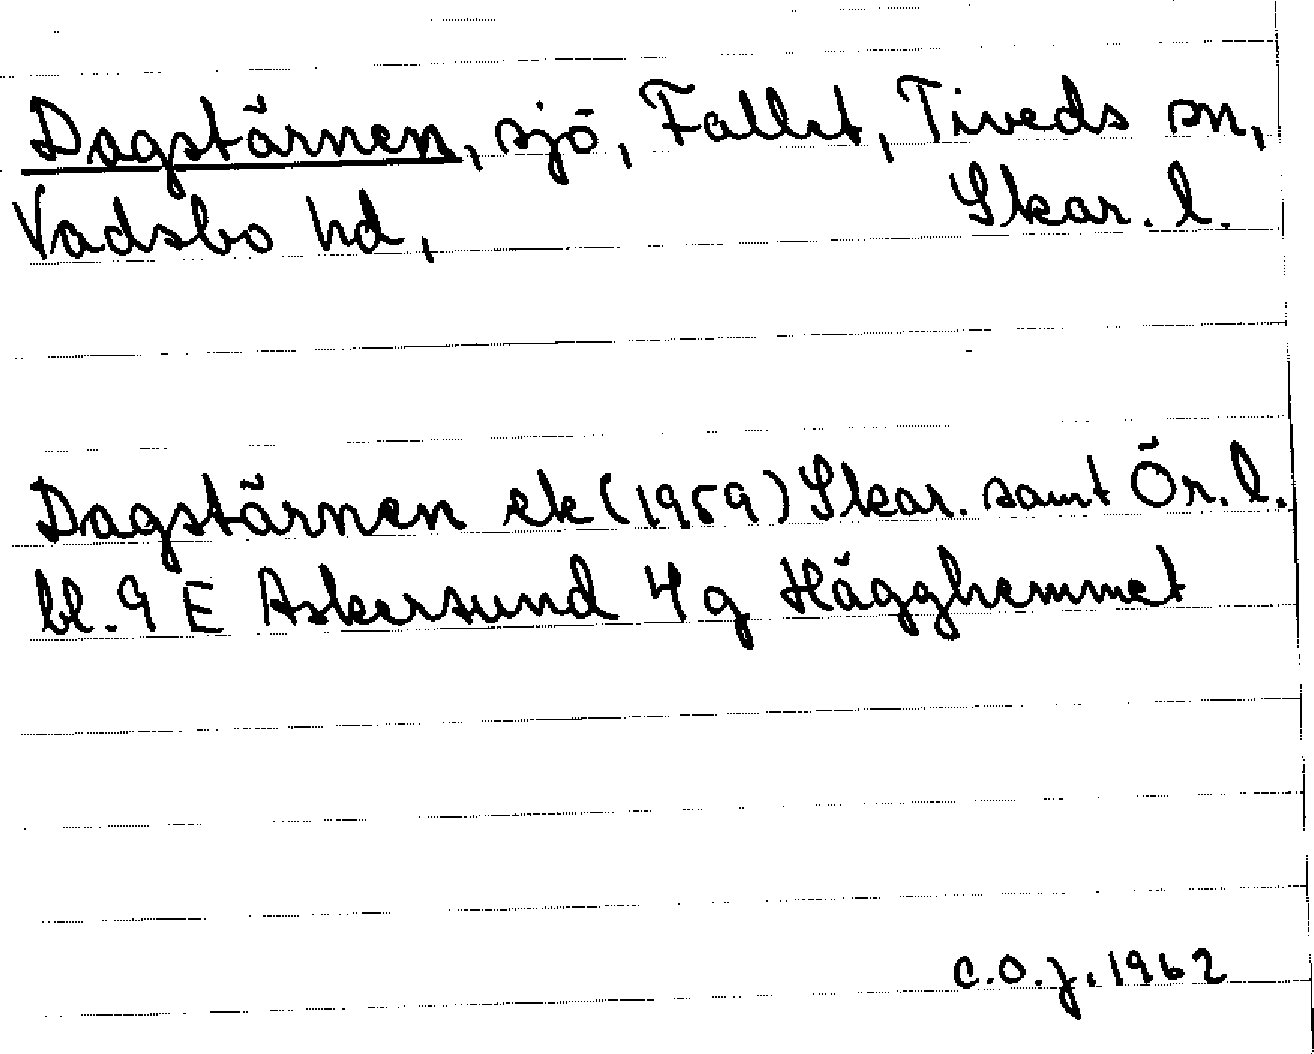 Dagstärnen, sjö, Fallet, Tiveds sn,
Vadsbo hd, Skar. l.
Dagstärnen ek (1959) Skar. samt Ör. l.
bl. 9 E Askersund 4 g Hägghemmet
C.O.J. 1962